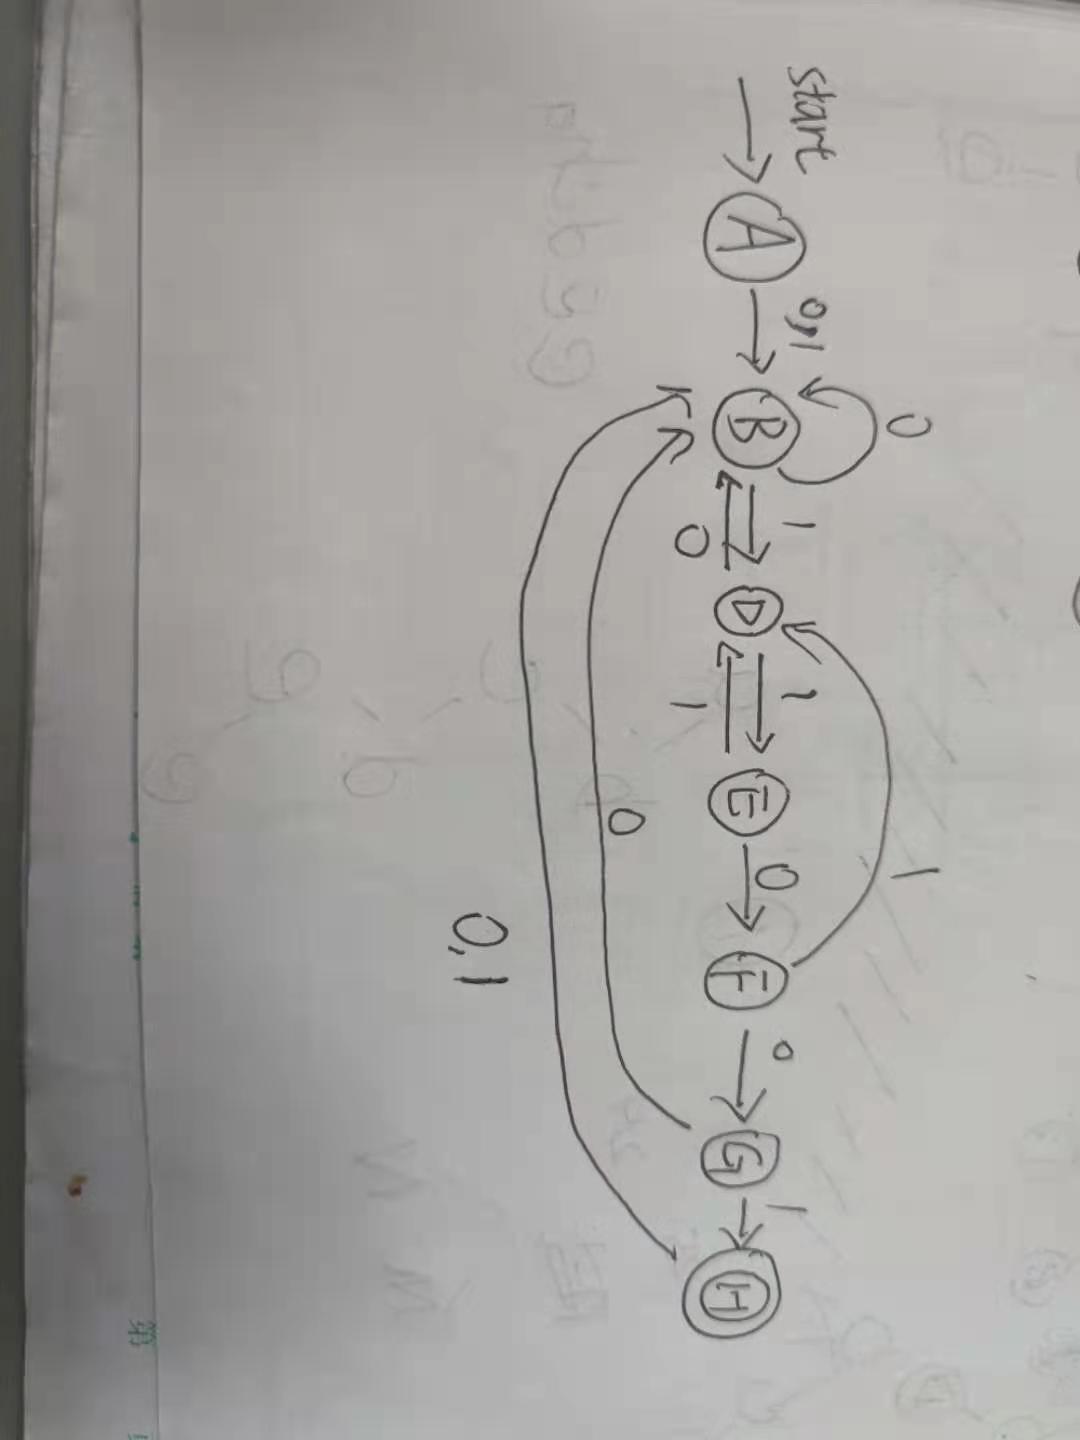 start
A
0,1
B
0
1
0
D
1
1
E
0
F
1
0
G
1
H
0
0,1